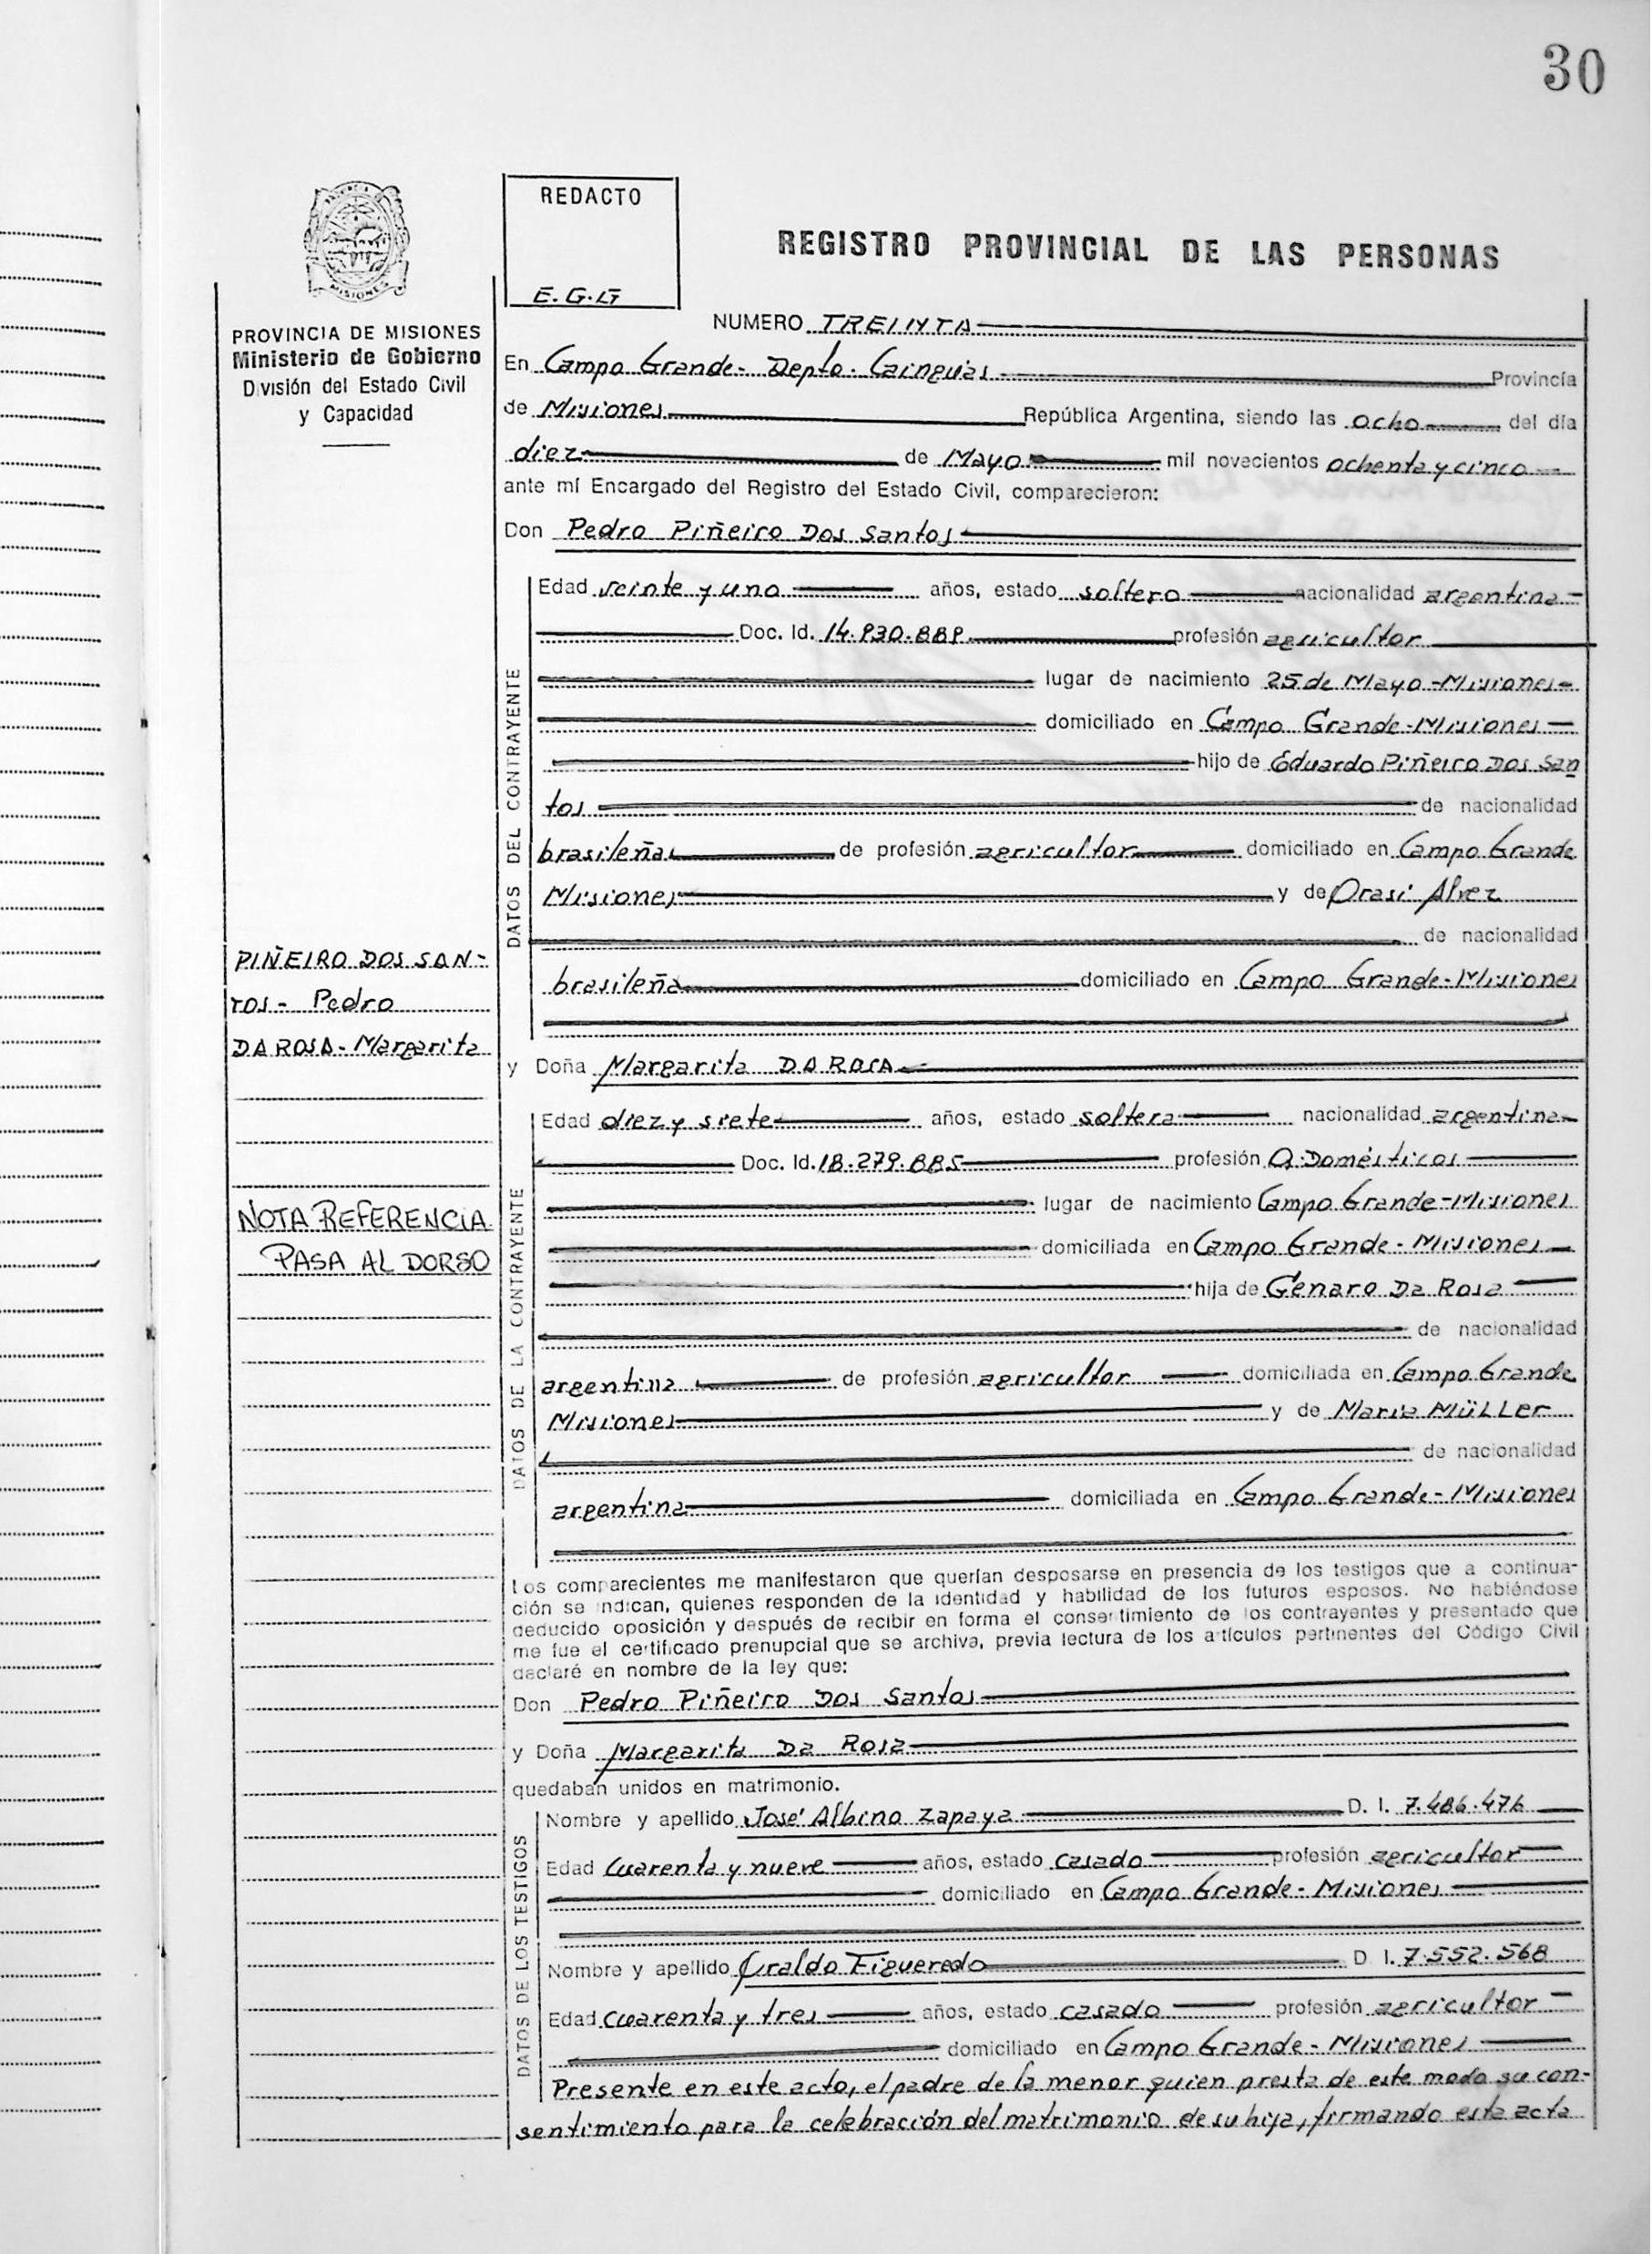 30
REDACTO
E.G.G
REGISTRO PROVINCIAL DE LAS PERSONAS
MISIONES
PROVINCIA DE MISIONES
Ministerio de Gobierno
División del Estado Civil
y Capacidad
NUMERO TREINTA
En Campo Grande- Depto. Cainguás Provincia
de Misiones República Argentina, siendo las ocho del día
diez de Mayo mil novecientos ochenta y cinco
ante mí Encargado del Registro del Estado Civil, comparecieron:
Don Pedro Piñeiro Dos Santos
DATOS DEL CONTRAYENTE
Edad veinte y uno años, estado soltero nacionalidad argentina
Doc. Id. 14.930.889 profesión agricultor
lugar de nacimiento 25 de Mayo-Misiones
domiciliado en Campo Grande-Misiones
hijo de Eduardo Piñeiro Dos San
tos de nacionalidad
brasileña de profesión agricultor domiciliado en Campo Grande
Misiones y de Orasi Alvez
de nacionalidad
brasileña domiciliado en Campo Grande-Misiones
PIÑEIRO DOS SAN-
TOS- Pedro
DA ROSA- Margarita
y Doña Margarita DA ROSA
DATOS DE LA CONTRAYENTE
Edad diez y siete años, estado soltera nacionalidad argentina
Doc. Id. 18.279.885 profesión Q.Domésticos
lugar de nacimiento Campo Grande-Misiones
domiciliada en Campo Grande-Misiones
hija de Genaro Da Rosa
de nacionalidad
argentina de profesión agricultor domiciliada en Campo Grande
Misiones y de Maria MÜLLer
de nacionalidad
argentina domiciliada en Campo Grande-Misiones
NOTA REFERENCIA
PASA AL DORSO
Los comparecientes me manifestaron que querían desposarse en presencia de los testigos que a continua-
ción se indican, quienes responden de la identidad y habilidad de los futuros esposos. No habiéndose
deducido oposición y después de recibir en forma el consentimiento de los contrayentes y presentado que
me fue el certificado prenupcial que se archiva, previa lectura de los artículos pertinentes del Código Civil
declaré en nombre de la ley que:
Don Pedro Piñeiro Dos Santos
y Doña Margarita Da Rosa
quedaban unidos en matrimonio.
DATOS DE LOS TESTIGOS
Nombre y apellido José Albino Zapaya D. I. 7.486.476
Edad Cuarenta y nueve años, estado casado profesión agricultor
domiciliado en Campo Grande-Misiones
Nombre y apellido Figueredo D. I. 7.552.568
Edad cuarenta y tres años, estado casado profesión agricultor
domiciliado en Campo Grande-Misiones
Presente en este acto, el padre de la menor quien presta de este modo su con-
sentimiento para la celebración del matrimonio de su hija, firmando esta acta